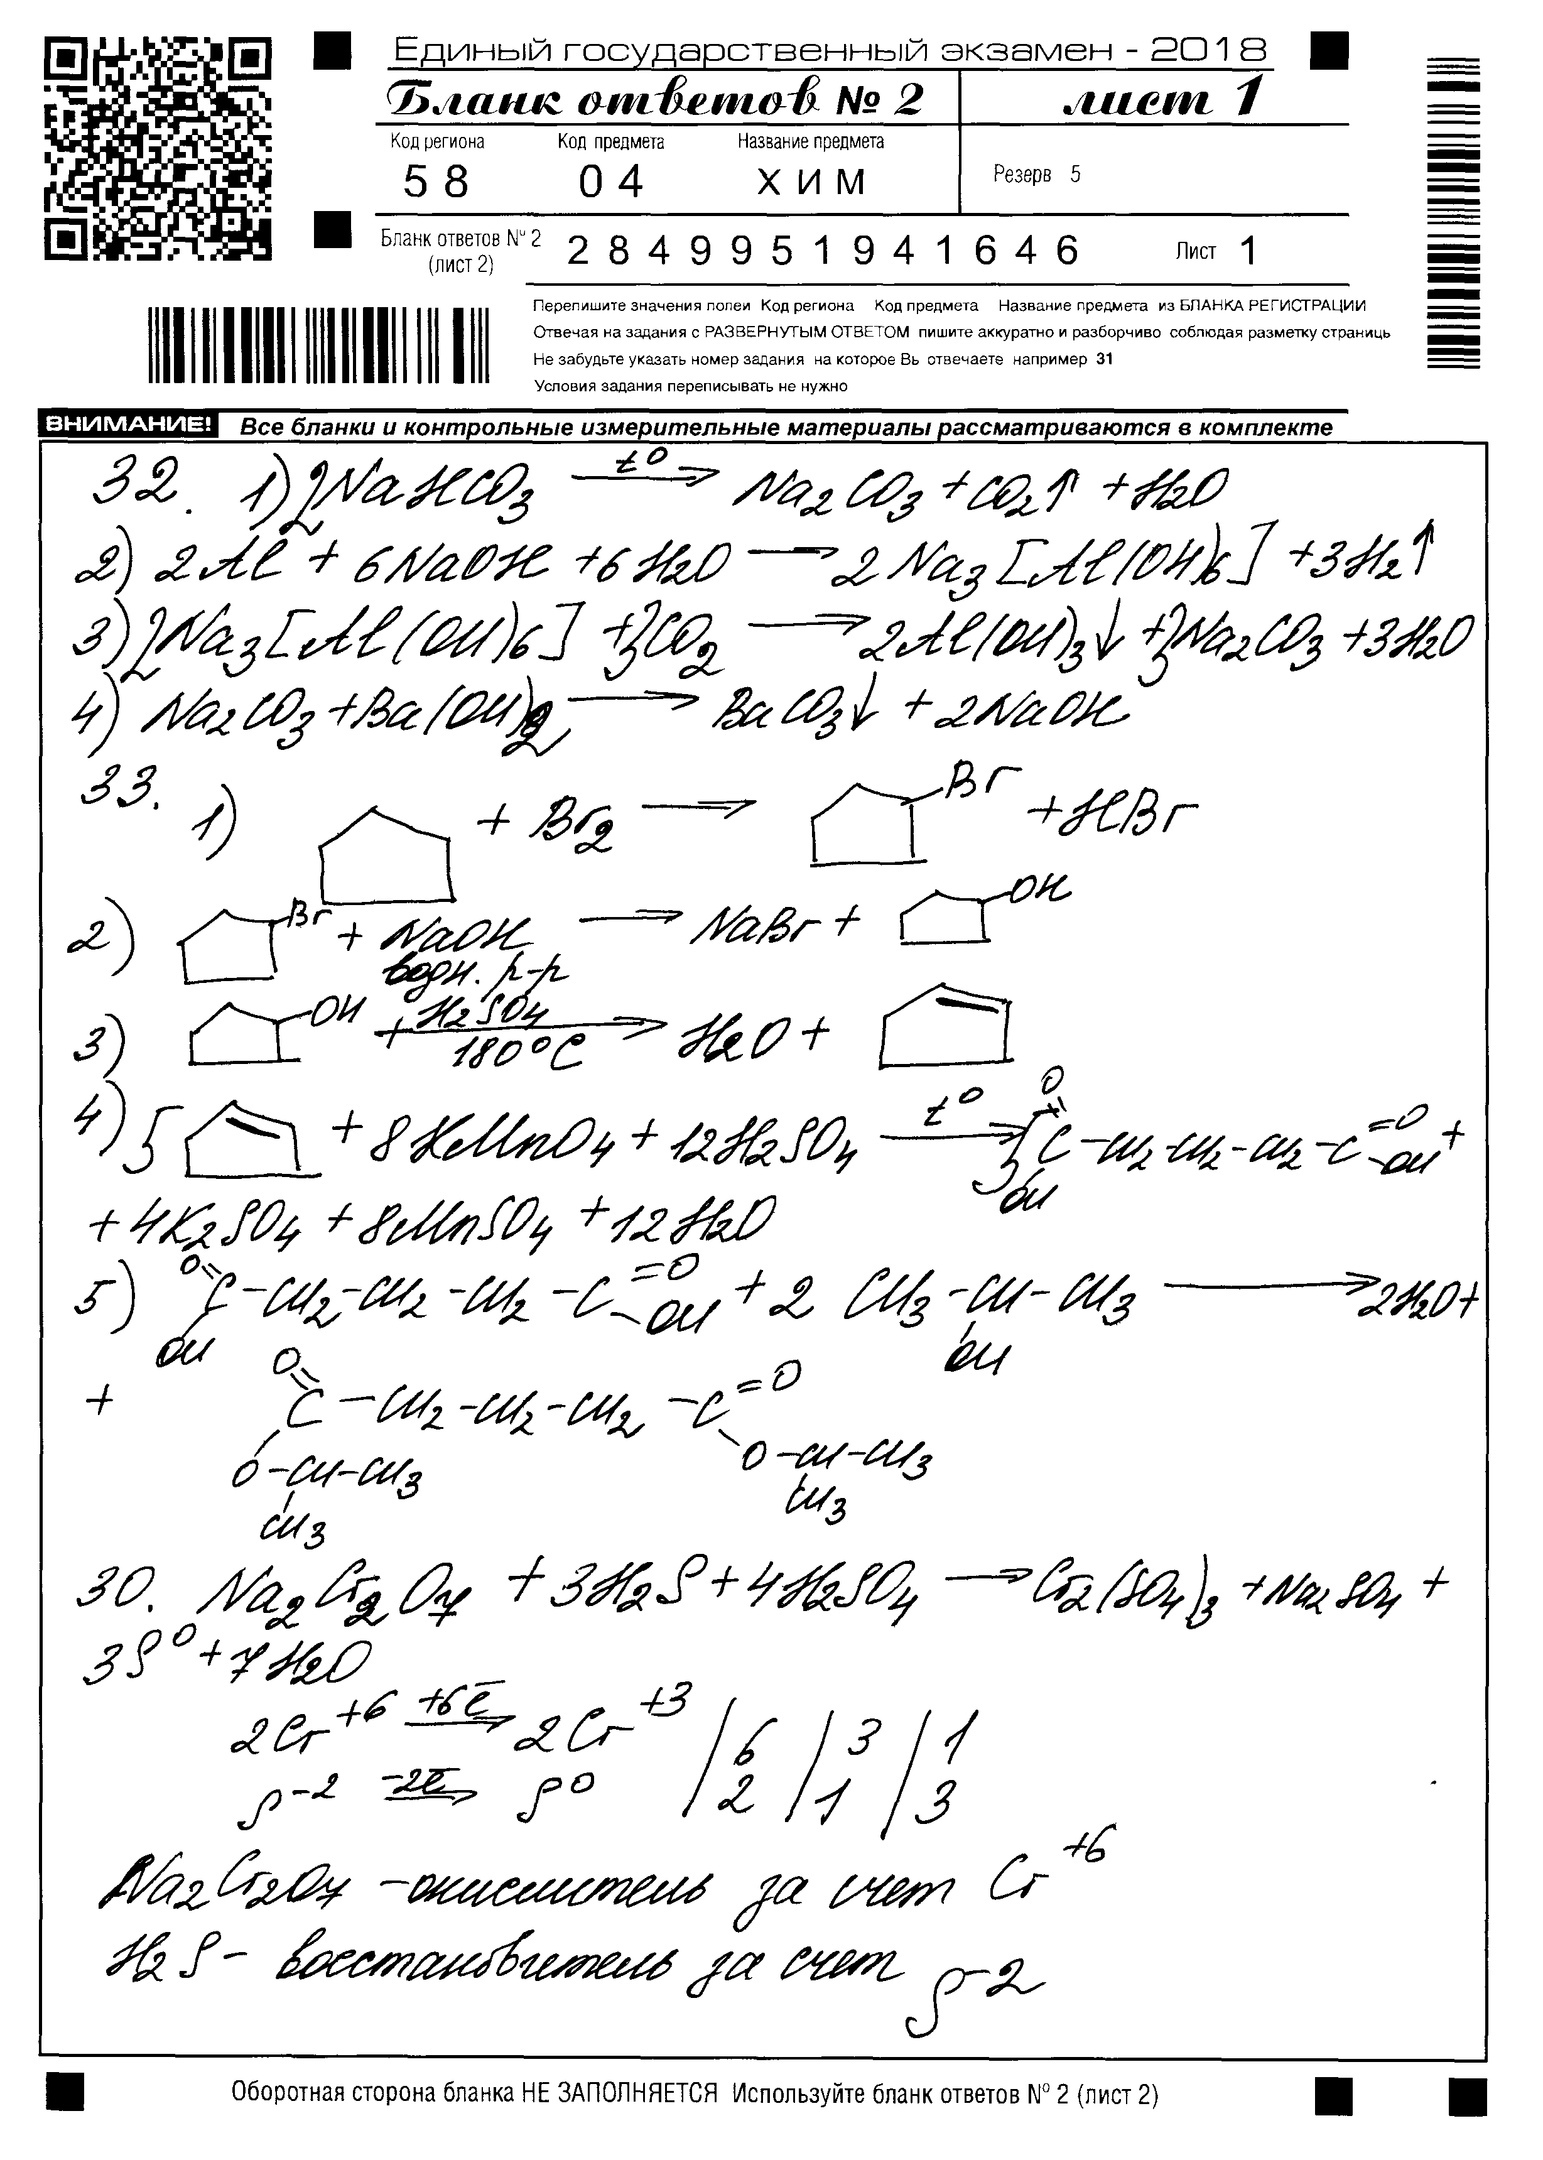 Единый государственный экзамен - 2018
Бланк ответов № 2 лист 1
Код региона Код предмета Название предмета
58 04 ХИМ Резерв 5
Бланк ответов № 2 (лист 2) 2849951941646 Лист 1
Перепишите значения полеи Код региона Код предмета Название предмета из БЛАНКА РЕГИСТРАЦИИ
Отвечая на задания с РАЗВЕРНУТЫМ ОТВЕТОМ пишите аккуратно и разборчиво соблюдая разметку страниць
Не забудьте указать номер задания на которое Вь отвечаете например 31
Условия задания переписывать не нужно
ВНИМАНИЕ! Все бланки и контрольные измерительные материалы рассматриваются в комплекте
32. 1) 2NaHCO3 t° → Na2CO3 + CO2↑ + H2O
2) 2Al + 6NaOH + 6H2O → 2Na3[Al(OH)6] + 3H2↑
3) 2Na3[Al(OH)6] + 3CO2 → 2Al(OH)3↓ + 3Na2CO3 + 3H2O
4) Na2CO3 + Ba(OH)2 → BaCO3↓ + 2NaOH
33. 1) + Br2 → Br + HBr
2) Br + NaOH → NaBr + OH
водн. р-р
3) OH + H2SO4 180°C → H2O +
4) 5 + 8KMnO4 + 12H2SO4 t° → 5 O=C(OH)-CH2-CH2-CH2-C(=O)-OH +
+ 4K2SO4 + 8MnSO4 + 12H2O
5) O=C(OH)-CH2-CH2-CH2-C(=O)-OH + 2 CH3-CH(OH)-CH3 → 2H2O +
+ O=C-CH2-CH2-CH2-C=O
O-CH-CH3 O-CH-CH3
CH3 CH3
30. Na2Cr2O7 + 3H2S + 4H2SO4 → Cr2(SO4)3 + Na2SO4 +
3S° + 7H2O
2Cr+6 +6ē → 2Cr+3 | 6 | 3 | 1
S-2 -2ē → S0 | 2 | 1 | 3
Na2Cr2O7 - окислитель за счет Cr+6
H2S - восстановитель за счет S-2
Оборотная сторона бланка НЕ ЗАПОЛНЯЕТСЯ Используйте бланк ответов № 2 (лист 2)